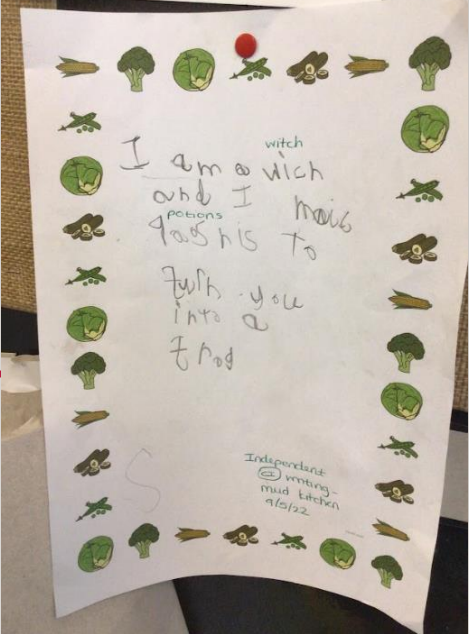 witch
I am a wich
and I maic
potions
poshis to
turn you
into a
frog
Independent
@ writing -
mud kitchen
9/5/22